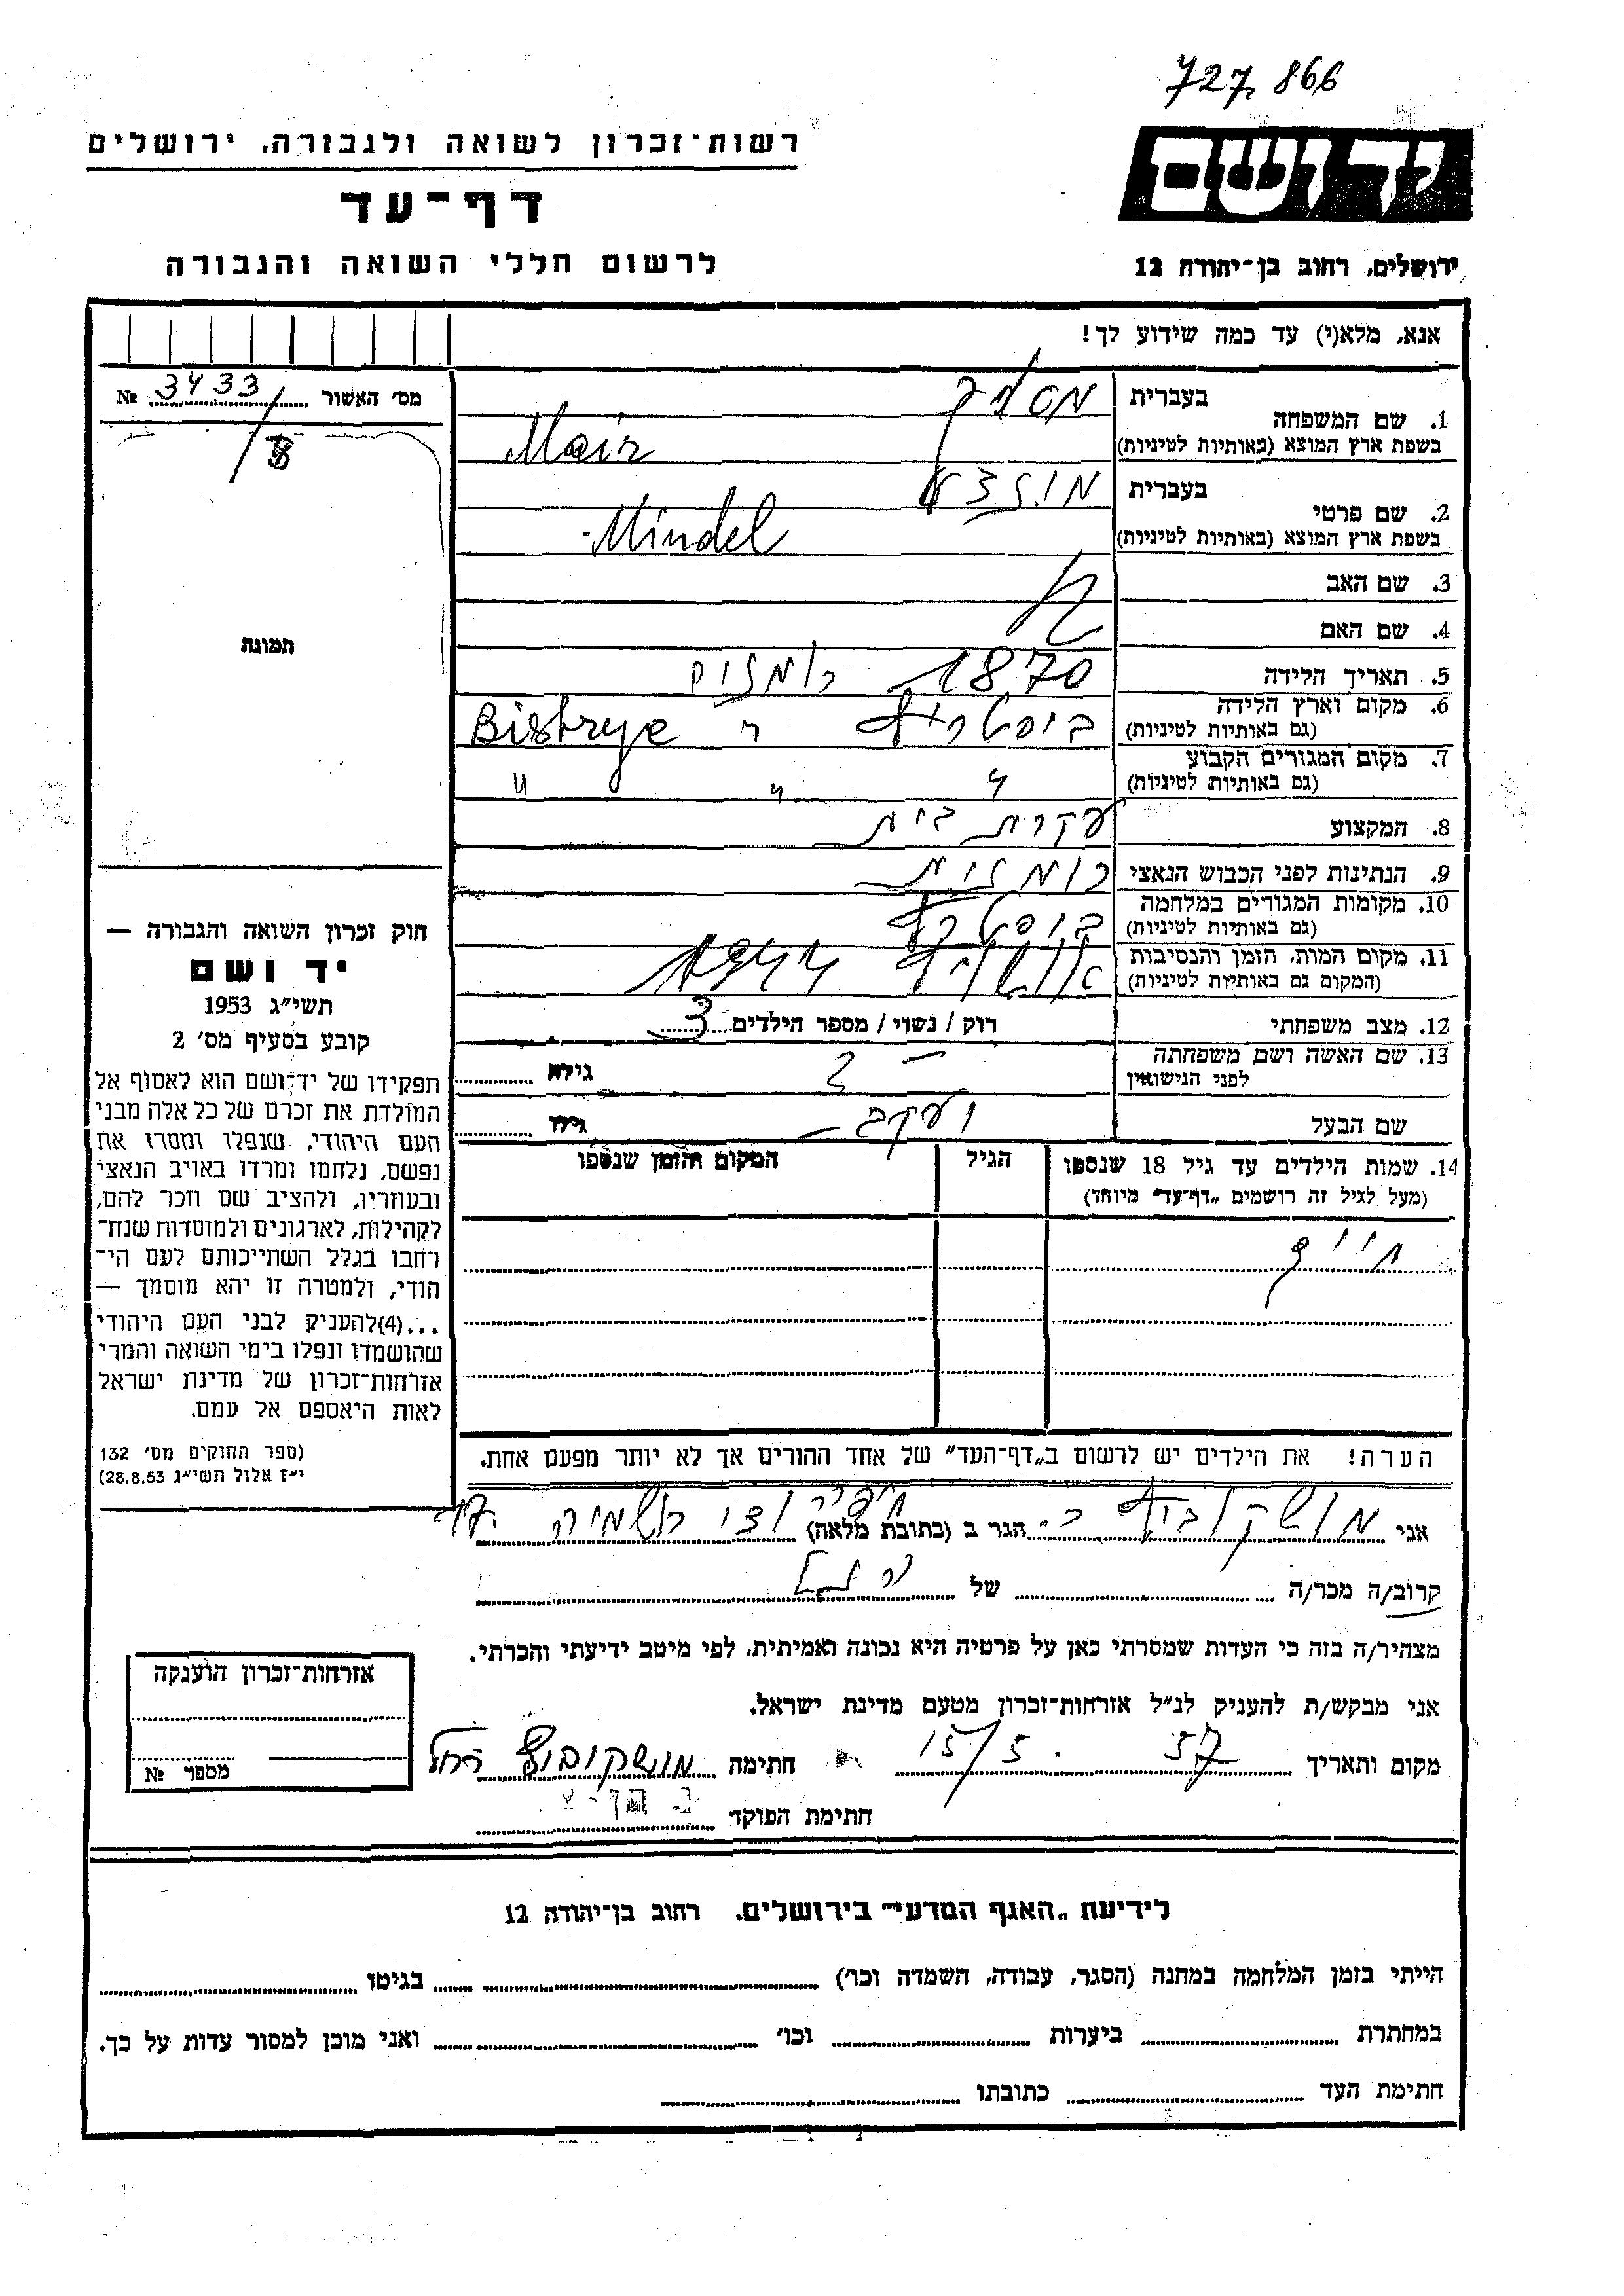 727.866
רשות־זכרון לשואה ולגבורה, ירושלים
יד ושם
דף־עד
לרשום חללי השואה והגבורה
ירושלים, רחוב בן־יהודה 12
אנא, מלא(י) עד כמה שידוע לך!
מס׳ האשור № 3433
8
תמונה
1. שם המשפחה בעברית
בשפת ארץ המוצא (באותיות לטיניות) Mair
2. שם פרטי בעברית
בשפת ארץ המוצא (באותיות לטיניות) Mindel
3. שם האב
4. שם האם
5. תאריך הלידה 1870
6. מקום וארץ הלידה
(גם באותיות לטיניות)
7. מקום המגורים הקבוע " " "
(גם באותיות לטיניות)
8. המקצוע עקרת בית
9. הנתינות לפני הכבוש הנאצי
10. מקומות המגורים במלחמה
(גם באותיות לטיניות)
11. מקום המות, הזמן והנסיבות 1944
(המקום גם באותיות לטיניות)
12. מצב משפחתי רוק / נשוי / מספר הילדים 3
13. שם האשה ושם משפחתה
לפני הנישואין גילה
שם הבעל יעקב גילו
14. שמות הילדים עד גיל 18 שנספו הגיל המקום והזמן שנספו
(מעל לגיל זה רושמים „דף־עד" מיוחד)
חוק זכרון השואה והגבורה —
יד ושם
תשי״ג 1953
קובע בסעיף מס׳ 2
תפקידו של יד־ושם הוא לאסוף אל
המולדת את זכרם של כל אלה מבני
העם היהודי, שנפלו ומסרו את
נפשם, נלחמו ומרדו באויב הנאצי
ובעוזריו, ולהציב שם וזכר להם,
לקהילות, לארגונים ולמוסדות שנח־
רחבו בגלל השתייכותם לעם הי־
הודי, ולמטרה זו יהא מוסמך —
...(4)להעניק לבני העם היהודי
שהושמדו ונפלו בימי השואה והמרי
אזרחות־זכרון של מדינת ישראל
לאות היאספם אל עמם.
(ספר החוקים מס׳ 132
י״ז אלול תשי״ג 28.8.53)
הערה! את הילדים יש לרשום ב„דף־העד" של אחד ההורים אך לא יותר מפעם אחת.
אני מושקוביץ ר. הגר ב (כתובת מלאה)
קרוב/ה מכר/ה של
מצהיר/ה בזה כי העדות שמסרתי כאן על פרטיה היא נכונה ואמיתית, לפי מיטב ידיעתי והכרתי.
אני מבקש/ת להעניק לנ״ל אזרחות־זכרון מטעם מדינת ישראל.
מקום ותאריך 15/5.57 חתימה מושקוביץ רחל
חתימת הפוקד
אזרחות־זכרון הוענקה
מספר №
לידיעת „האגף המדעי" בירושלים, רחוב בן־יהודה 12
הייתי בזמן המלחמה במחנה (הסגר, עבודה, השמדה וכו׳) בגיטו
במחתרת ביערות וכו׳ ואני מוכן למסור עדות על כך.
חתימת העד כתובתו